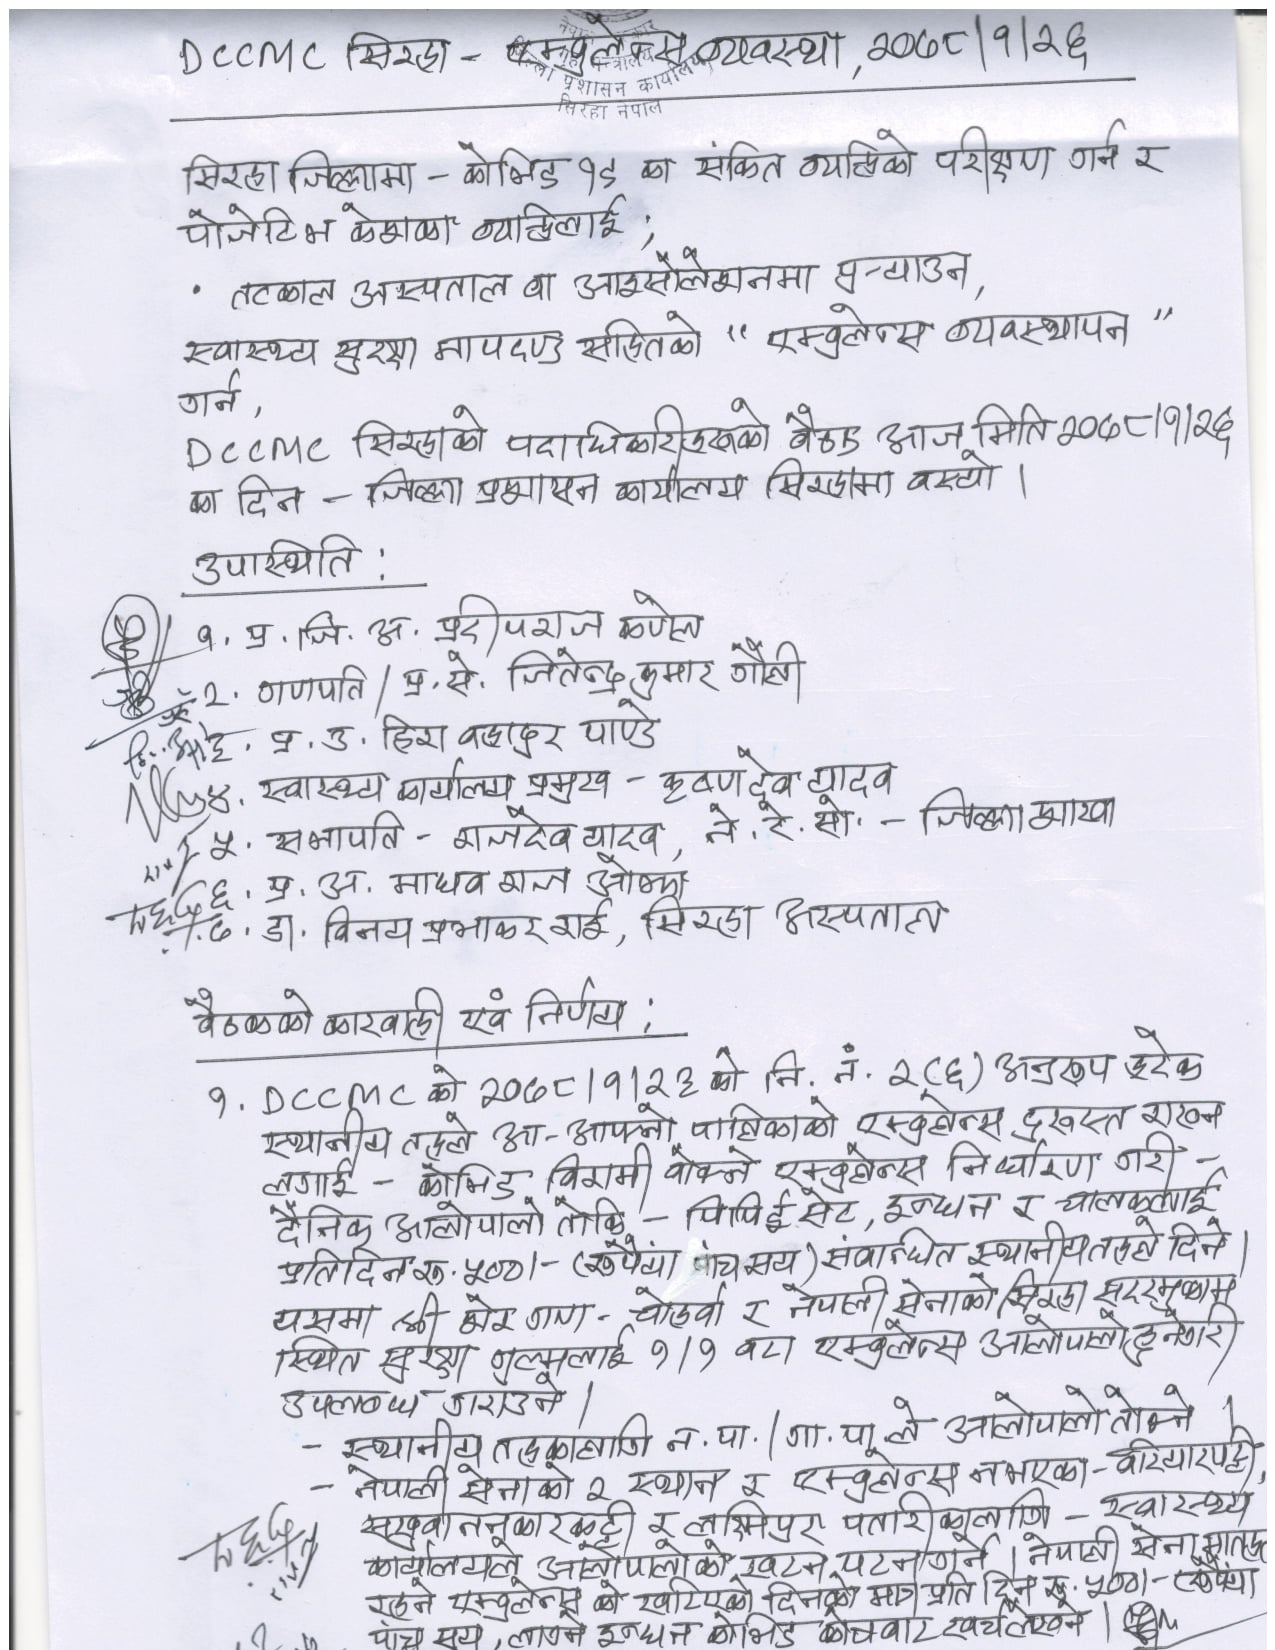 DCCMC सिरहा - एम्बुलेन्स व्यवस्था, २०७८/१/२६
जिल्ला प्रशासन कार्यालय
सिरहा नेपाल
सिरहा जिल्लामा - कोभिड १९ का संकित व्यक्तिको परीक्षण गर्न र
पोजेटिभ केशका व्यक्तिलाई ;
• तत्काल अस्पताल वा आइसोलेशनमा पुर्‍याउन,
स्वास्थ्य सुरक्षा मापदण्ड सहितको " एम्बुलेन्स व्यवस्थापन "
गर्न,
DCCMC सिरहाको पदाधिकारीहरुको बैठक आज मिति २०७८/१/२६
का दिन - जिल्ला प्रशासन कार्यालय सिरहामा बस्यो ।
उपास्थिति :
१. प्र. जि. अ. प्रदीपराज कणेल
२. गणपति / प्र. से. जितेन्द्र कुमार गौली
३. प्र. उ. हिरा बहादुर पाण्डे
४. स्वास्थ्य कार्यालय प्रमुख - कृष्णदेव यादव
५. सभापति - राजदेव यादव, ने. रे. सो. - जिल्ला शाखा
६. प्र. अ. माधव राज ओझा
७. डा. विनय प्रभाकर साई, सिरहा अस्पताल
बैठकको कारवाही एवं निर्णय :
१. DCCMC को २०७८/१/२३ को नि. नं. २(६) अनुरुप हरेक
स्थानीय तहले आ-आफ्नो पालिकाको एम्बुलेन्स दुरुस्त राख्न
लगाई - कोभिड विरामी बोक्ने एम्बुलेन्स निर्धारण गरी -
दैनिक आलोपालो तोकि - पिपिई सेट, इन्धन र चालकलाई
प्रतिदिन रु. ५००।- (रुपैयां पांच सय) संवान्धित स्थानीय तहले दिने ।
यसमा श्री शेर गण - चोहर्वा र नेपाली सेनाको सिरहा सदरमुकाम
स्थित सुरक्षा गुल्मलाई १/१ वटा एम्बुलेन्स आलोपालो हुनेगरि
उपलब्ध गराउने ।
- स्थानीय तहकालागि न.पा./गा.पा.ले आलोपालो तोक्ने ।
- नेपाली सेनाको २ स्थान र एम्बुलेन्स नभएका - बरियारपट्टी,
सखुवा ननुकारकट्टी र लक्ष्मिपुर पतारीकालागि - स्वास्थ्य
कार्यालयले आलोपालोको खटन पटन गर्ने । नेपाली सेना मातहत
रहने एम्बुलेन्स को खटिएको दिनको मात्र प्रति दिन रु. ५००।- (रुपैयां
पांच सय, लाग्ने इन्धन कोभिड कोषबाट खर्च लेख्ने ।